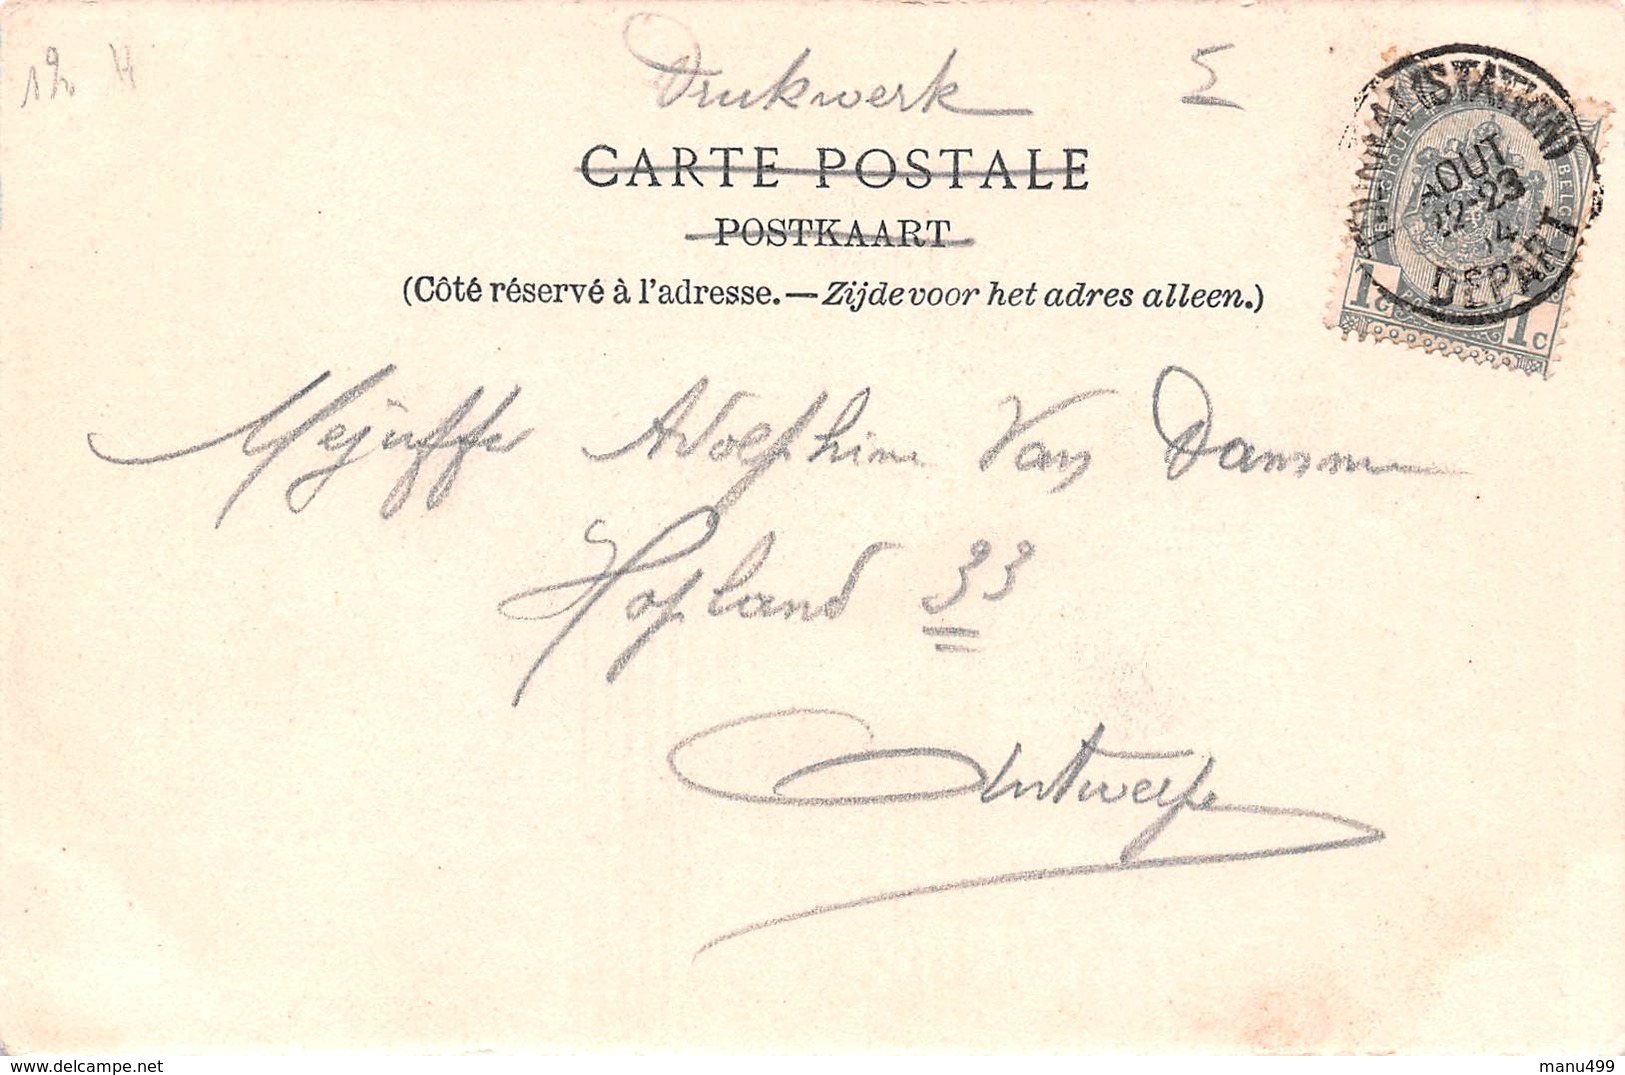 Drukwerk
CARTE POSTALE
POSTKAART
(Côté réservé à l'adresse. — Zijde voor het adres alleen.)
(STATION)
AOUT
22-23
DEPART
BELGIQUE BELGIE
1c 1c
Mejuffr Adolphine Van Damme
Hopland 33
Antwerpe
manu499